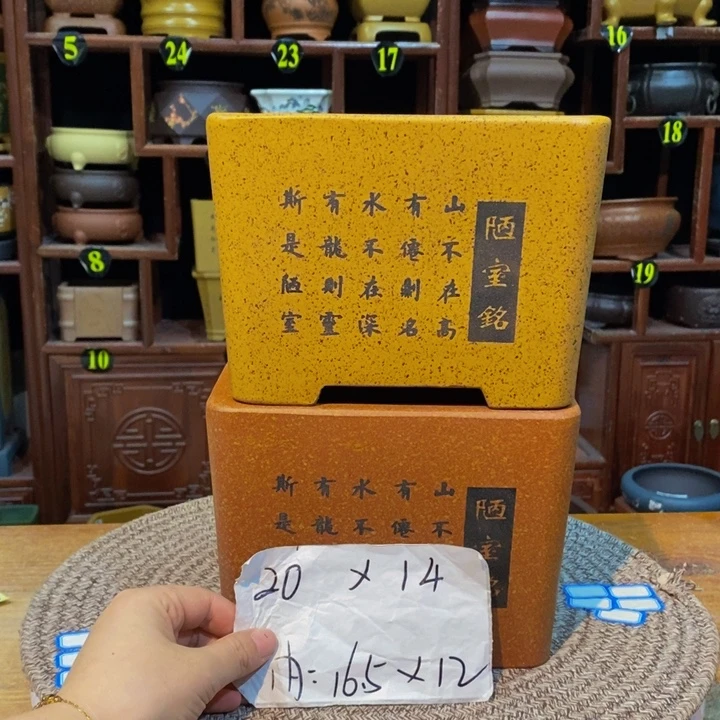 5
24
23
17
16
18
8
19
10
陋室銘
山不在高
有僊則名
水不在深
有龍則靈
斯是陋室
陋室銘
山不
有僊
水不
有龍
斯是
20 × 14
内=16.5×12